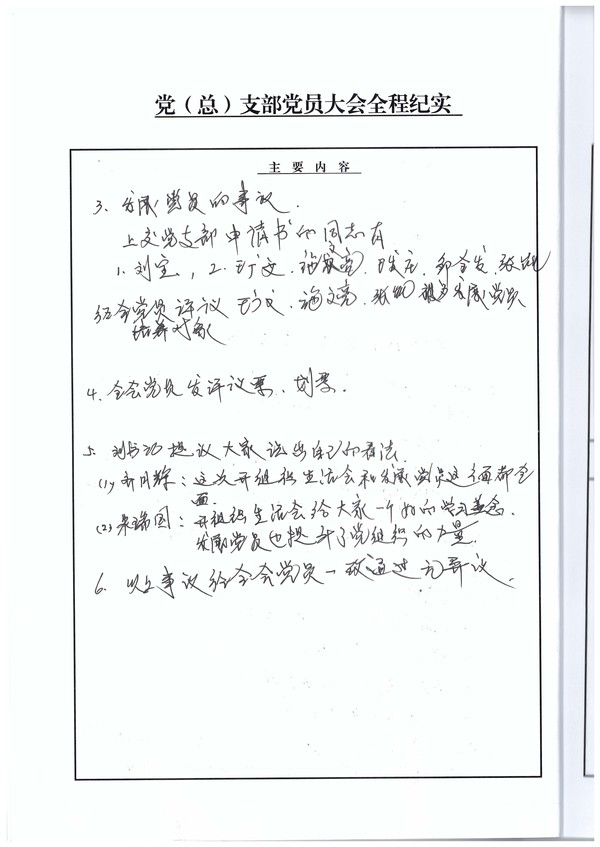 党（总）支部党员大会全程纪实
主 要 内 容
3、发展党员的事议.
上交党支部申请书的同志有
1、刘宝，2、王文.施文亮.
经全党员评议 王文.施文亮.张 被为发展党员
培养对象
4、全会党员发评议票、划票.
5、刘书记提议大家谈出自己的看法.
(1) 齐月辉：这次开组织生活会和发展党员这个面都全
面.
(2) 朱瑞国：开组织生活会给大家一个好的学习善念.
发展党员也提升了党组织的力量.
6、以上事议经全会党员一致通过无异议.